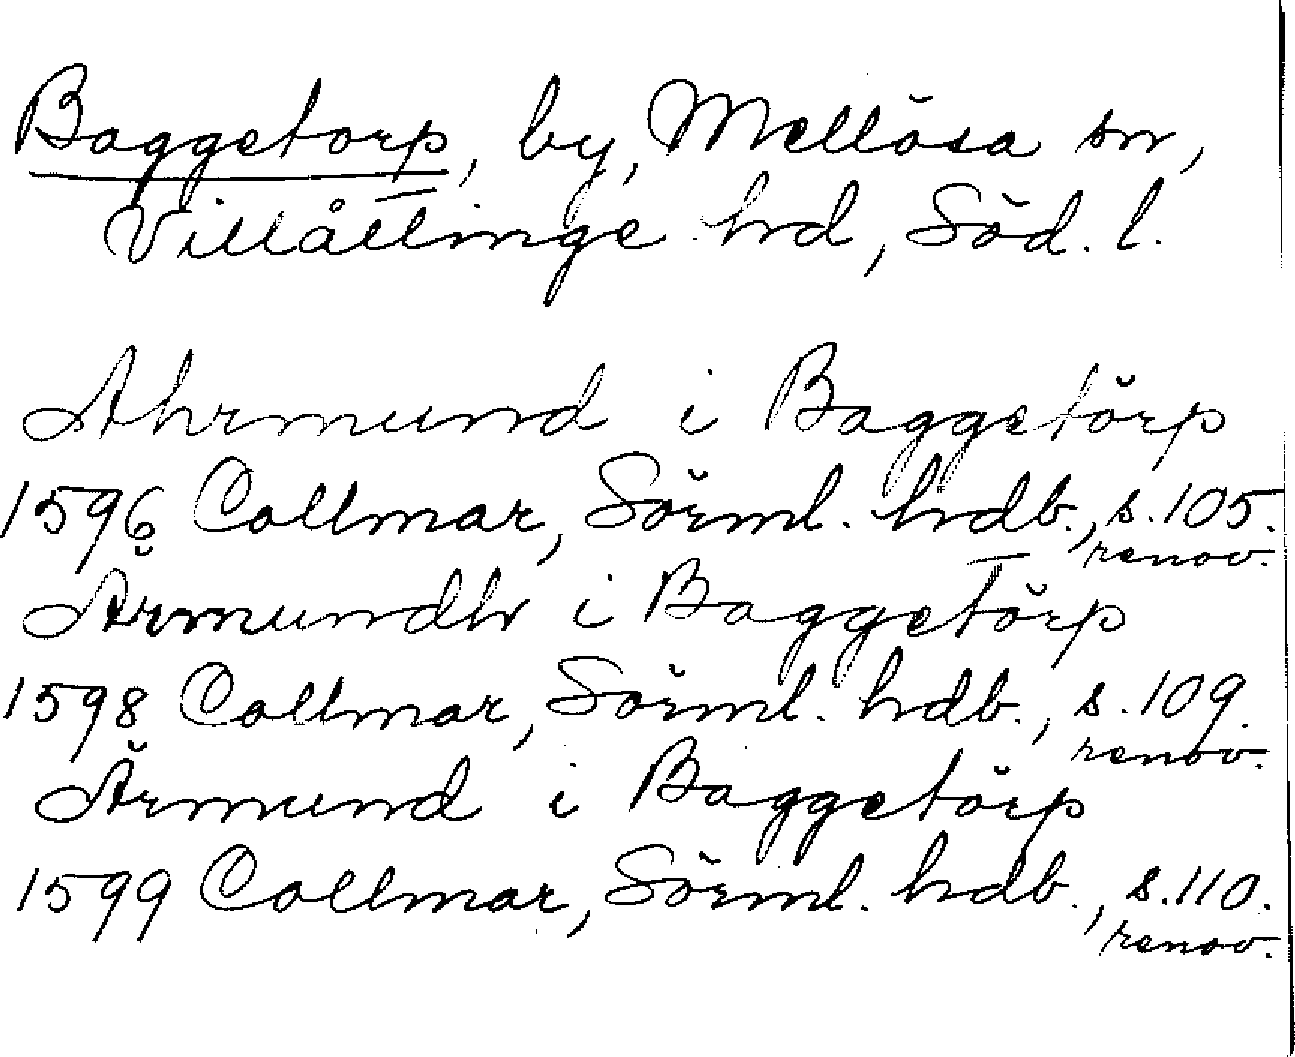 Baggetorp, by, Mellösa sn,
Villåttinge hd, Söd. l.
Ahrmund i Baggetörp
1596 Collmar, Sörml. hdb., s. 105.
renov.
Ärmundh i Baggetörp
1598 Collmar, Sörml. hdb., s. 109.
renov.
Ärmund i Baggetörp
1599 Collmar, Sörml. hdb., s. 110.
renov.